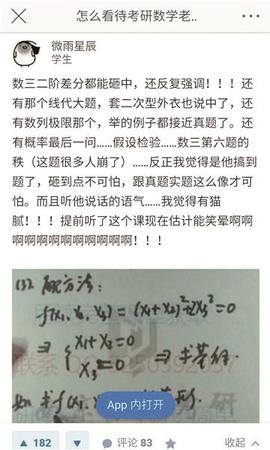 怎么看待考研数学老..
微雨星辰
学生
数三二阶差分都能砸中，还反复强调！！！还
有那个线代大题，套二次型外衣也说中了，还
有数列极限那个，举的例子都接近真题了。还
有概率最后一问……假设检验……数三第六题的
秩（这题很多人崩了）……反正我觉得是他搞到
题了，砸到点不可怕，跟真题实题这么像才可
怕。而且听他说话的语气……我觉得有猫
腻！！！提前听了这个课现在估计能笑晕啊啊
啊啊啊啊啊啊啊啊啊啊！！！
配方法：
f(x₁, x₂, x₃) = (x₁+x₂)²+2x₃²=0
⇒ { x₁+x₂=0
x₃=0
App 内打开
182
评论 83
收起